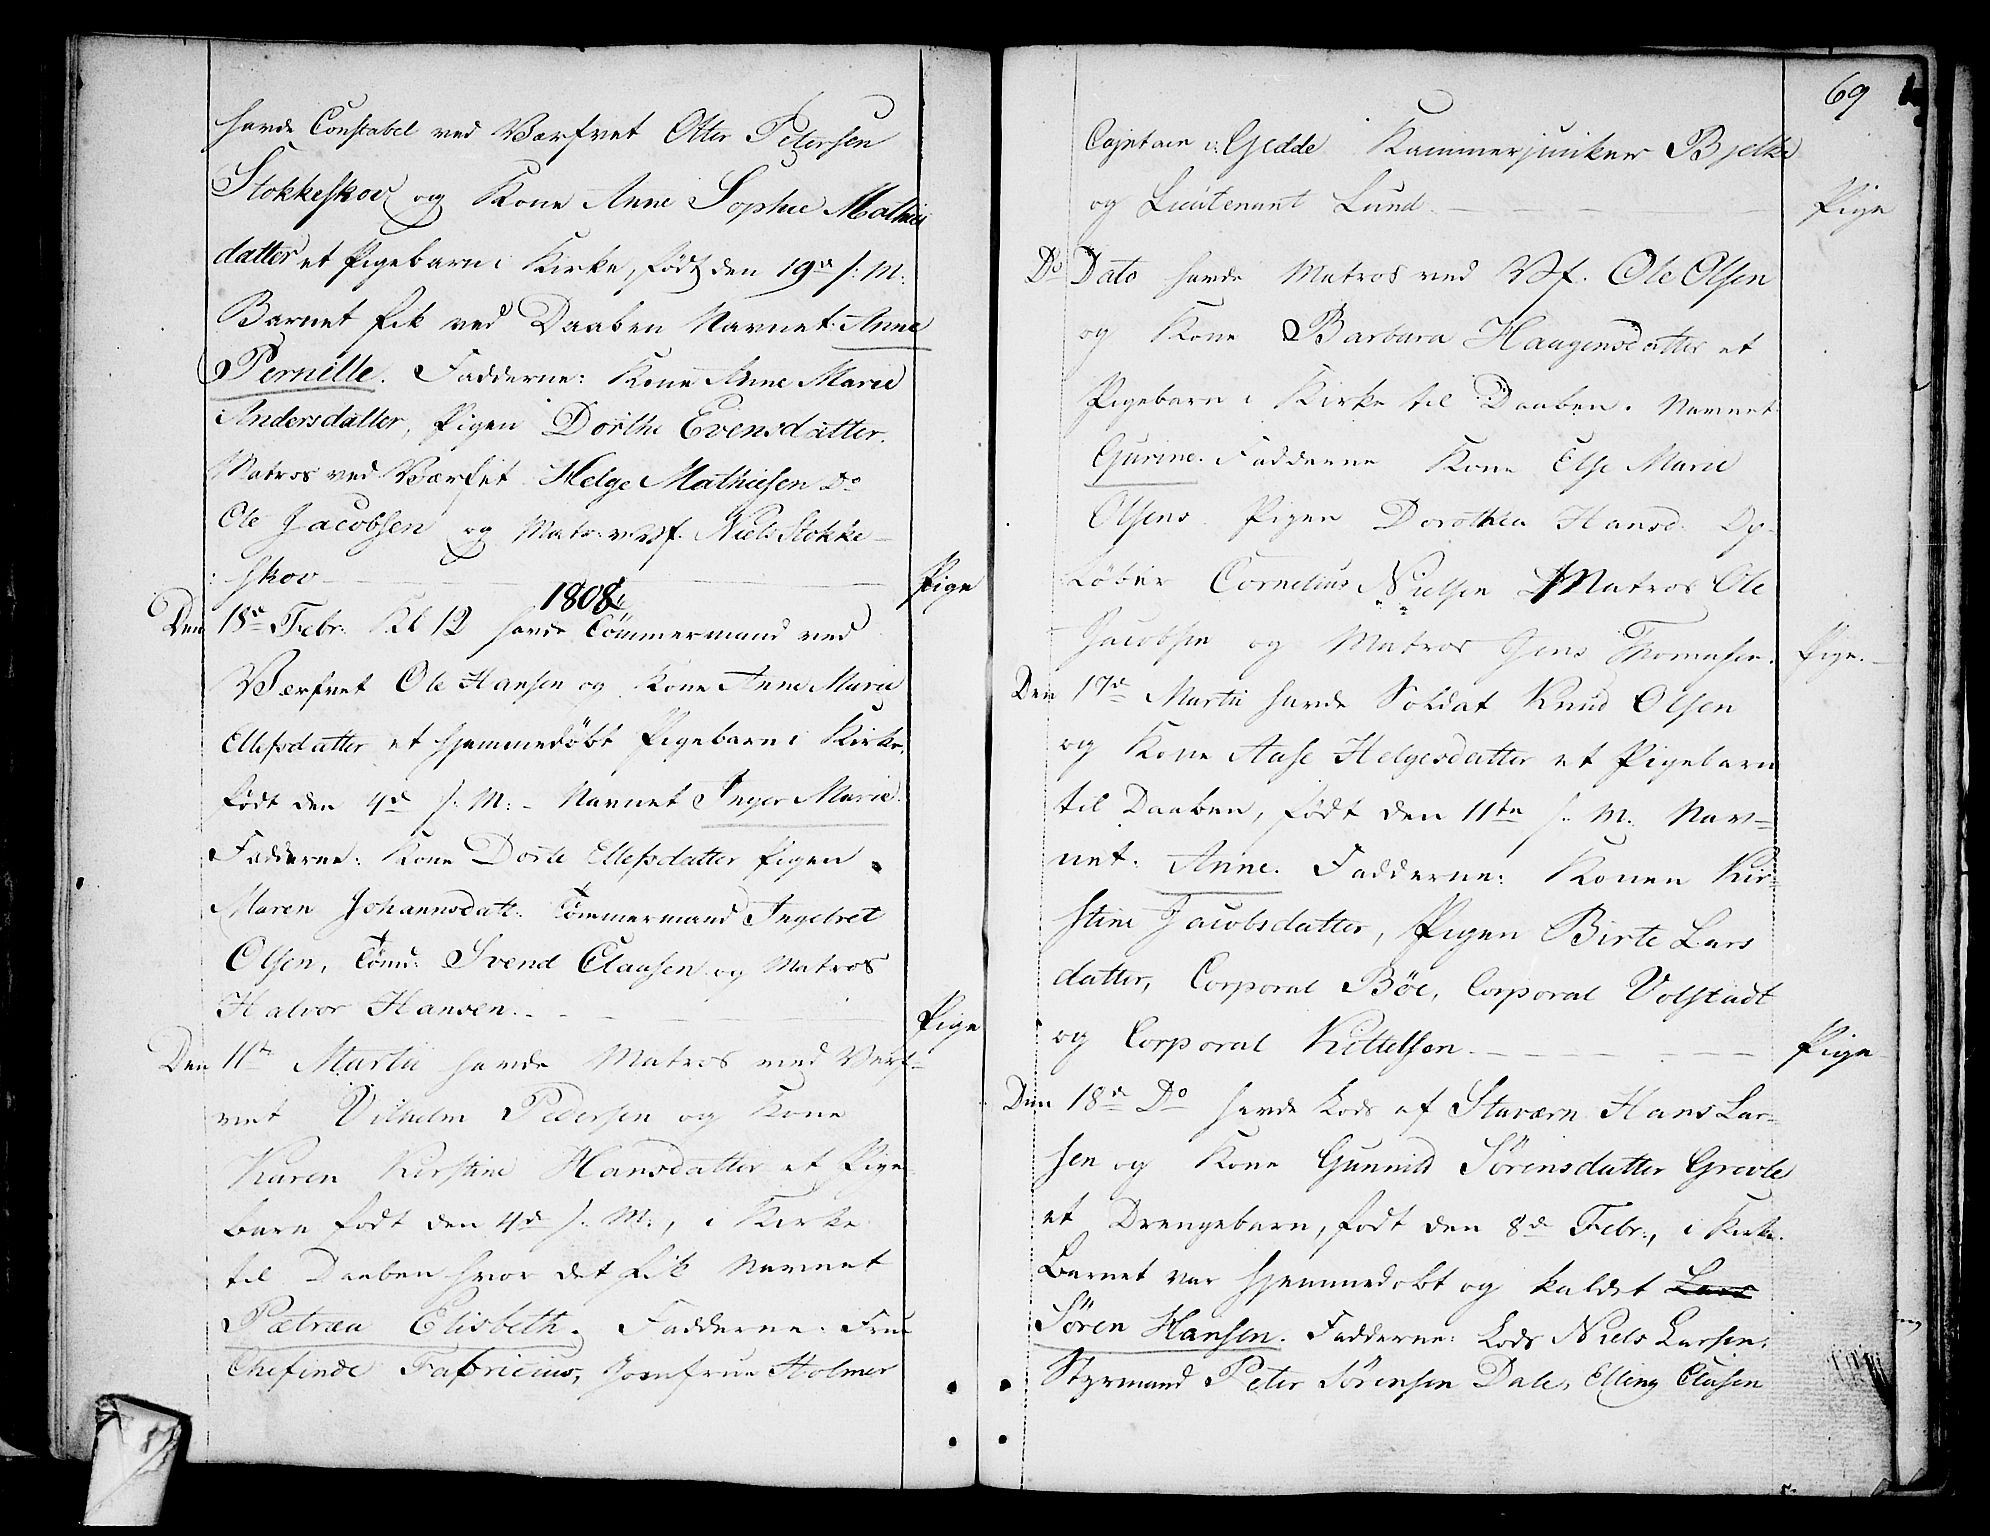 havde Constabel ved Værfvet Otter Petersen
Stokkeskov og Kone Anne Sophie Mathies
datter et Pigebarn i Kirke, født den 19de s: M:
Barnet fik ved Daaben Navnet: Anne
Pernille. Fadderne: Kone Anne Marie
Andersdatter, Pigen Dorthe Evensdatter.
Matros ved Værfet Helge Mathiesen Do
Ole Jacobsen og Matr: v. Vf. Niels Stokke-
skov
Pige
1808
Den 18de Febr. Kl 12 havde Tömmermand ved
Værfvet Ole Hansen og Kone Anne Marie
Ellefsdatter et hjemmedøbt Pigebarn i Kirke,
født den 4de s: M: - Navnet Inger Marie.
Fadderne: Kone Dorte Ellefsdatter pigen
Maren Johannsdatt. Tömmermand Ingebret
Olsen, Tömm: Svend Clausen og Matros
Halvor Hansen.
Pige
Den 11te Martii havde Matros ved Verf-
vet Vilhelm Pedersen og Kone
Karen Kirstine Hansdatter et Pige-
barn født den 4de s: M:, i Kirke
til Daaben hvor det fik Navnet
Pætræa Elisbeth. Fadderne: Frue
Chefinde Fabricius, Jomfrue Holmer
69
Capitain v: Gedde Kammerjunker Bjelke
og Lieutenant Lund.
Pige
Do Dato havde Matros ved Vf. Ole Olsen
og Kone Barbara Haagensdatter et
Pigebarn i Kirke til Daaben. Navnet
Gurine. Fadderne Kone Else Marie
Olsens Pigen Dorothea Hansd. Op-
løber Cornelius Nielsen Matros Ole
Jacobsen og Matros Jens Thomasen.
Pige.
Den 17de Martii havde Soldat Knud Olsen
og Kone Aase Helgesdatter et Pigebarn
til Daaben, født den 11te s: M: Nav-
net. Anne. Fadderne: Konen Kir-
stine Jacobsdatter, Pigen Birte Lars
datter, Corporal Böe, Corporal Volstadt
og Corporal Kittelsen.
Pige
Den 18de Do havde Lods af Staværn Hans Lar-
sen og Kone Gunnild Sörensdatter Grevle
et Drengebarn, født den 8de Febr:, i Kirke.
Barnet var hjemmedøbt og kaldet Lars
Søren Hansen. Fadderne: Lods Niels Larsen.
Styrmand Peter Sörensen Dale, Elling Clasen